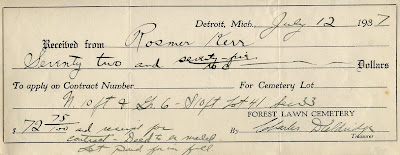 Detroit, Mich. July 12 1937
Received from Rosmer Kerr
Seventy two and seventy-five Dollars
To apply on Contract Number For Cemetery Lot
N 10 ft & Gr 6 - S 10 ft Lot 41 Sec 33
FOREST LAWN CEMETERY
$ 72 75/100 ad receipt for By Charles
contract - Deed to be mailed Treasurer
Lot Paid for in full